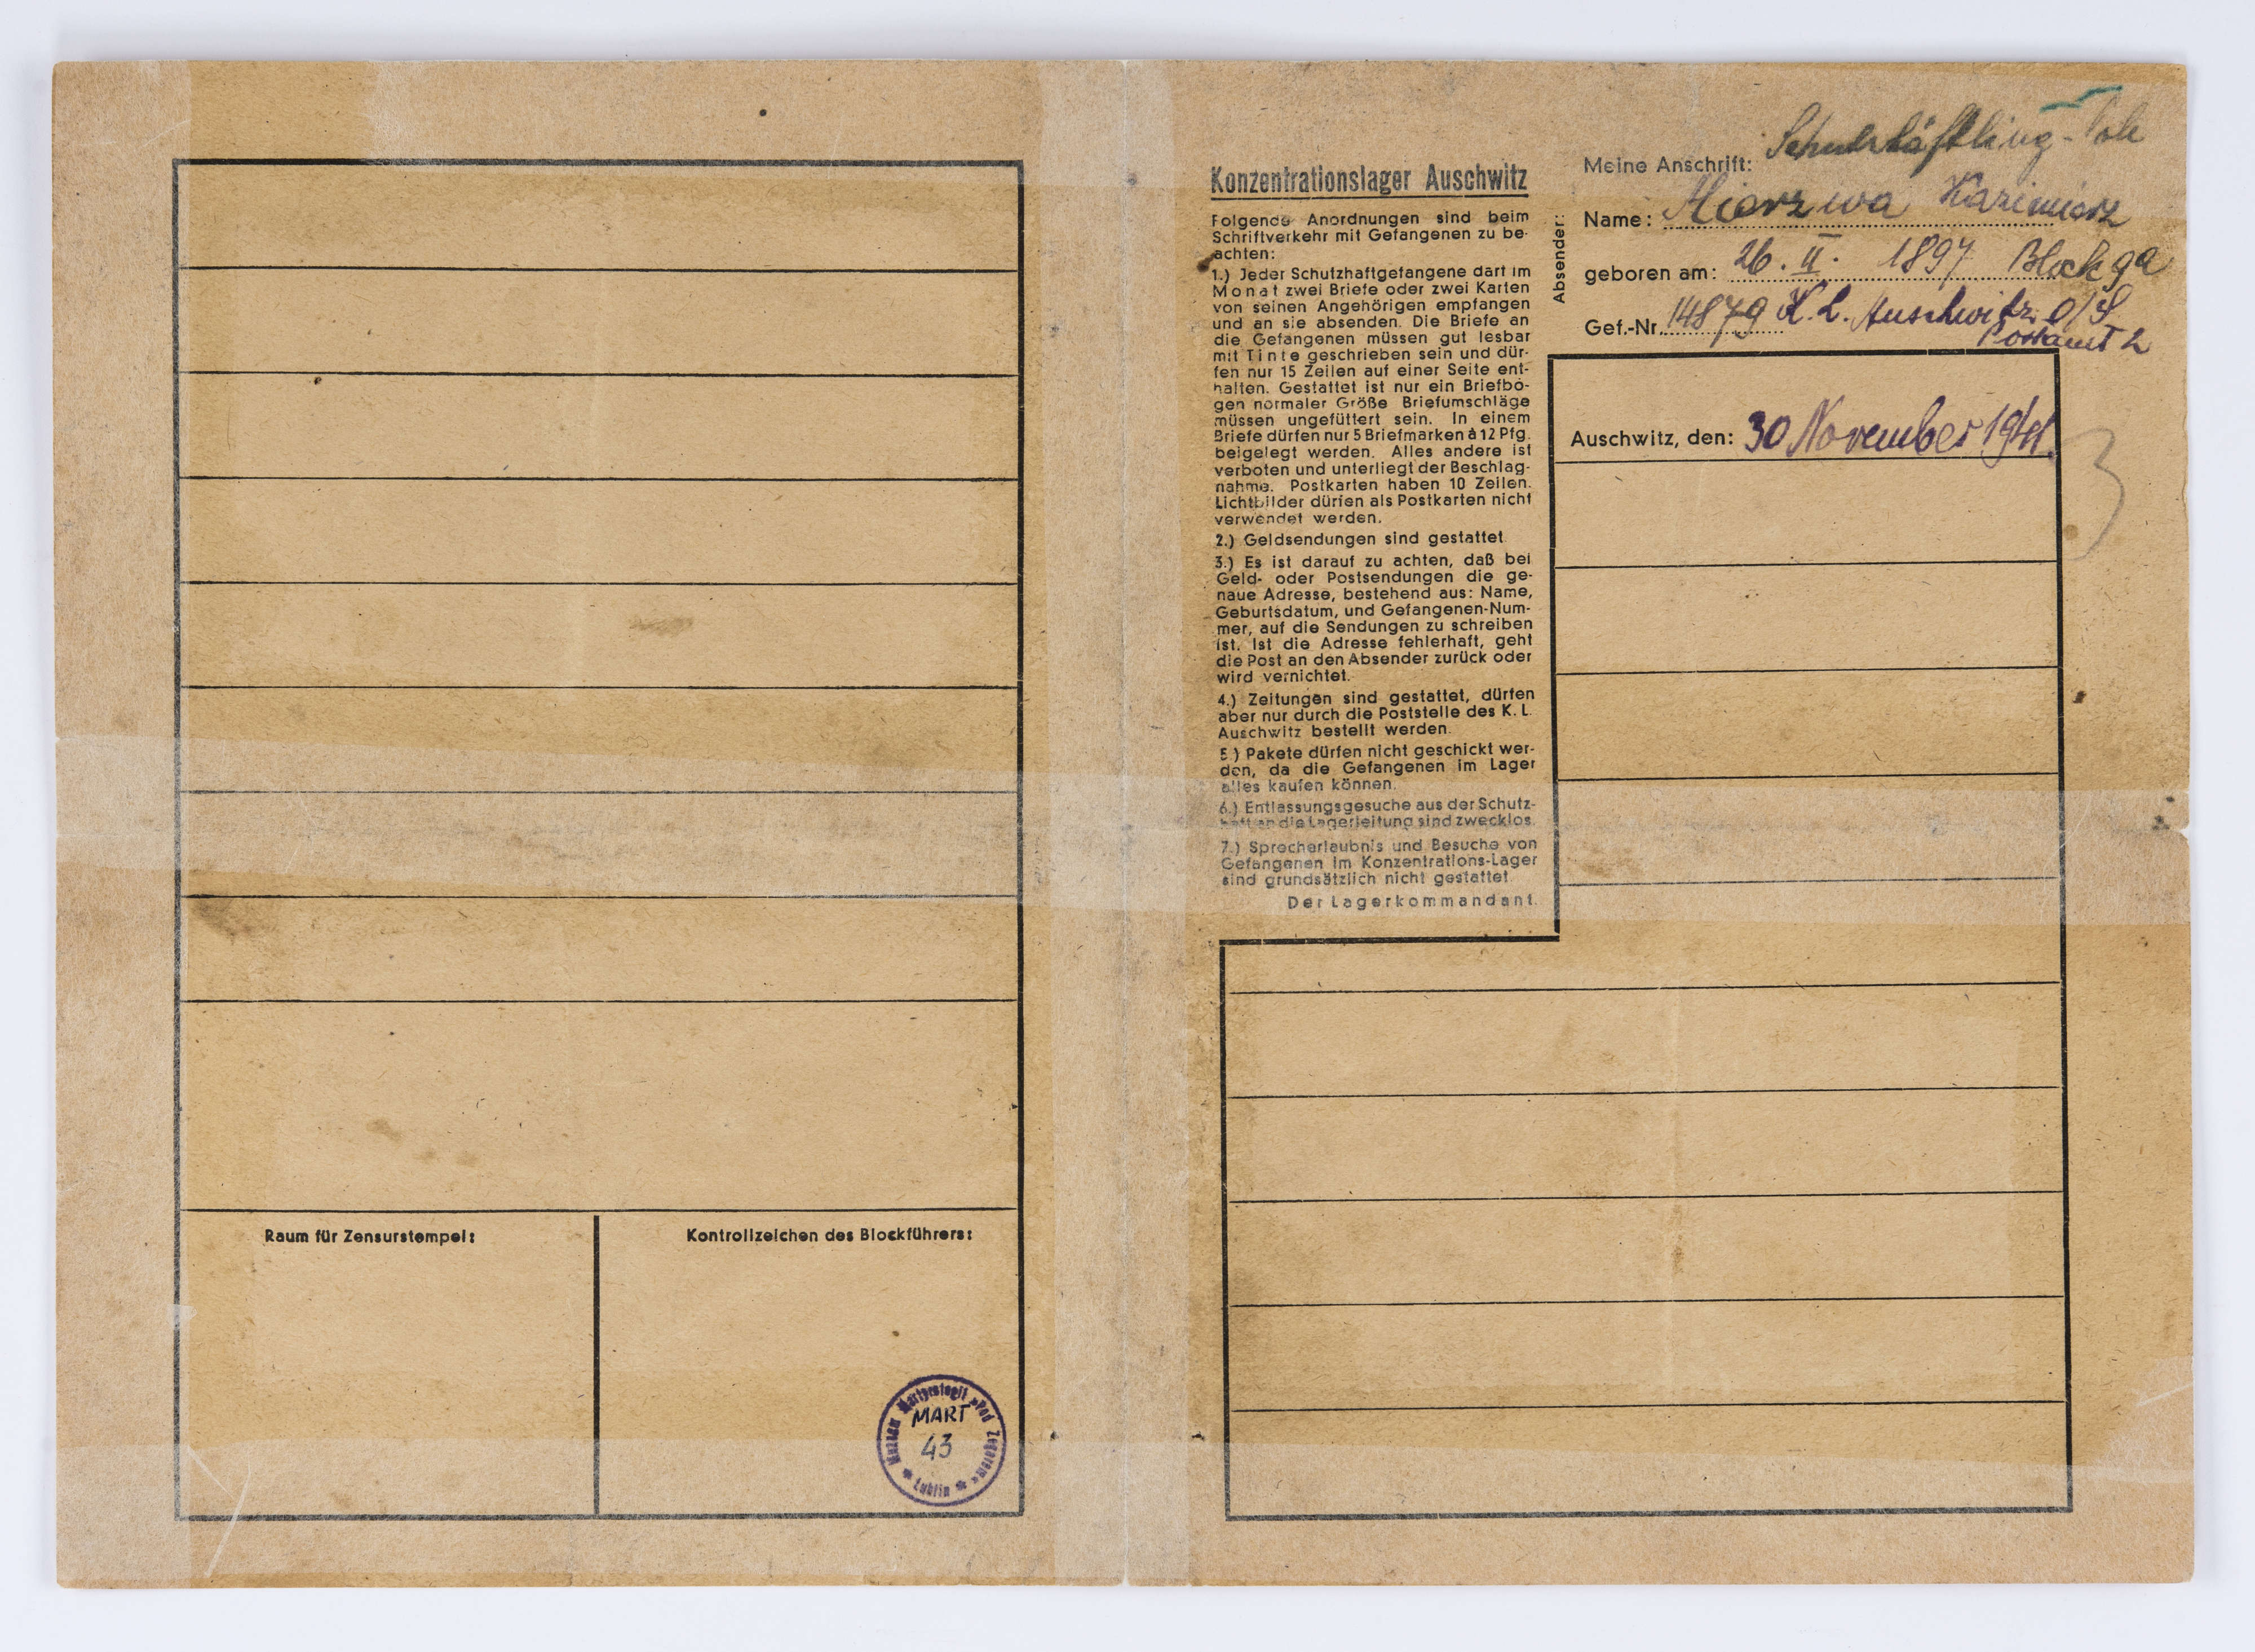 Raum für Zensurstempel:
Kontrollzeichen des Blockführers:
Muzeum Martyrologii »Pod Zegarem« Lublin
MART
43
Konzentrationslager Auschwitz
Folgende Anordnungen sind beim
Schriftverkehr mit Gefangenen zu be-
achten:
1.) Jeder Schutzhaftgefangene darf im
Monat zwei Briefe oder zwei Karten
von seinen Angehörigen empfangen
und an sie absenden. Die Briefe an
die Gefangenen müssen gut lesbar
mit Tinte geschrieben sein und dür-
fen nur 15 Zeilen auf einer Seite ent-
halten. Gestattet ist nur ein Briefbo-
gen normaler Größe Briefumschläge
müssen ungefüttert sein. In einem
Briefe dürfen nur 5 Briefmarken à 12 Pfg.
beigelegt werden. Alles andere ist
verboten und unterliegt der Beschlag-
nahme. Postkarten haben 10 Zeilen.
Lichtbilder dürfen als Postkarten nicht
verwendet werden.
2.) Geldsendungen sind gestattet
3.) Es ist darauf zu achten, daß bei
Geld- oder Postsendungen die ge-
naue Adresse, bestehend aus: Name,
Geburtsdatum, und Gefangenen-Num-
mer, auf die Sendungen zu schreiben
ist. Ist die Adresse fehlerhaft, geht
die Post an den Absender zurück oder
wird vernichtet.
4.) Zeitungen sind gestattet, dürfen
aber nur durch die Poststelle des K. L.
Auschwitz bestellt werden.
5.) Pakete dürfen nicht geschickt wer-
den, da die Gefangenen im Lager
alles kaufen können.
6.) Entlassungsgesuche aus der Schutz-
haft an die Lagerleitung sind zwecklos.
7.) Sprecherlaubnis und Besuche von
Gefangenen im Konzentrations-Lager
sind grundsätzlich nicht gestattet.
Der Lagerkommandant.
Absender:
Meine Anschrift: Schutzhäftling - Pole
Name: Mierzwa Kazimierz
geboren am: 26. II. 1897 Block 9a
Gef.-Nr. 14879 K. L. Auschwitz O/S
Postamt 2
Auschwitz, den: 30 November 1941.
3